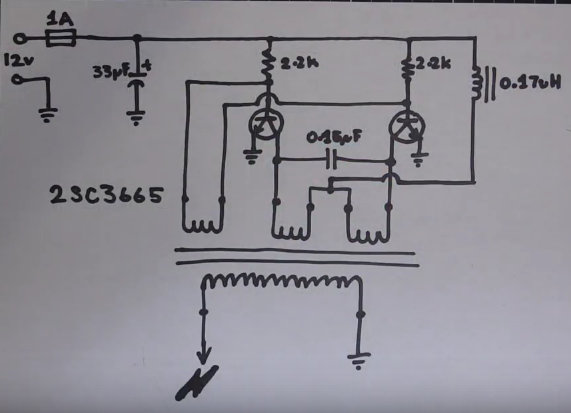 1A
12v
33µF +
2.2k
2.2k
0.17uH
0.15µF
2SC3665